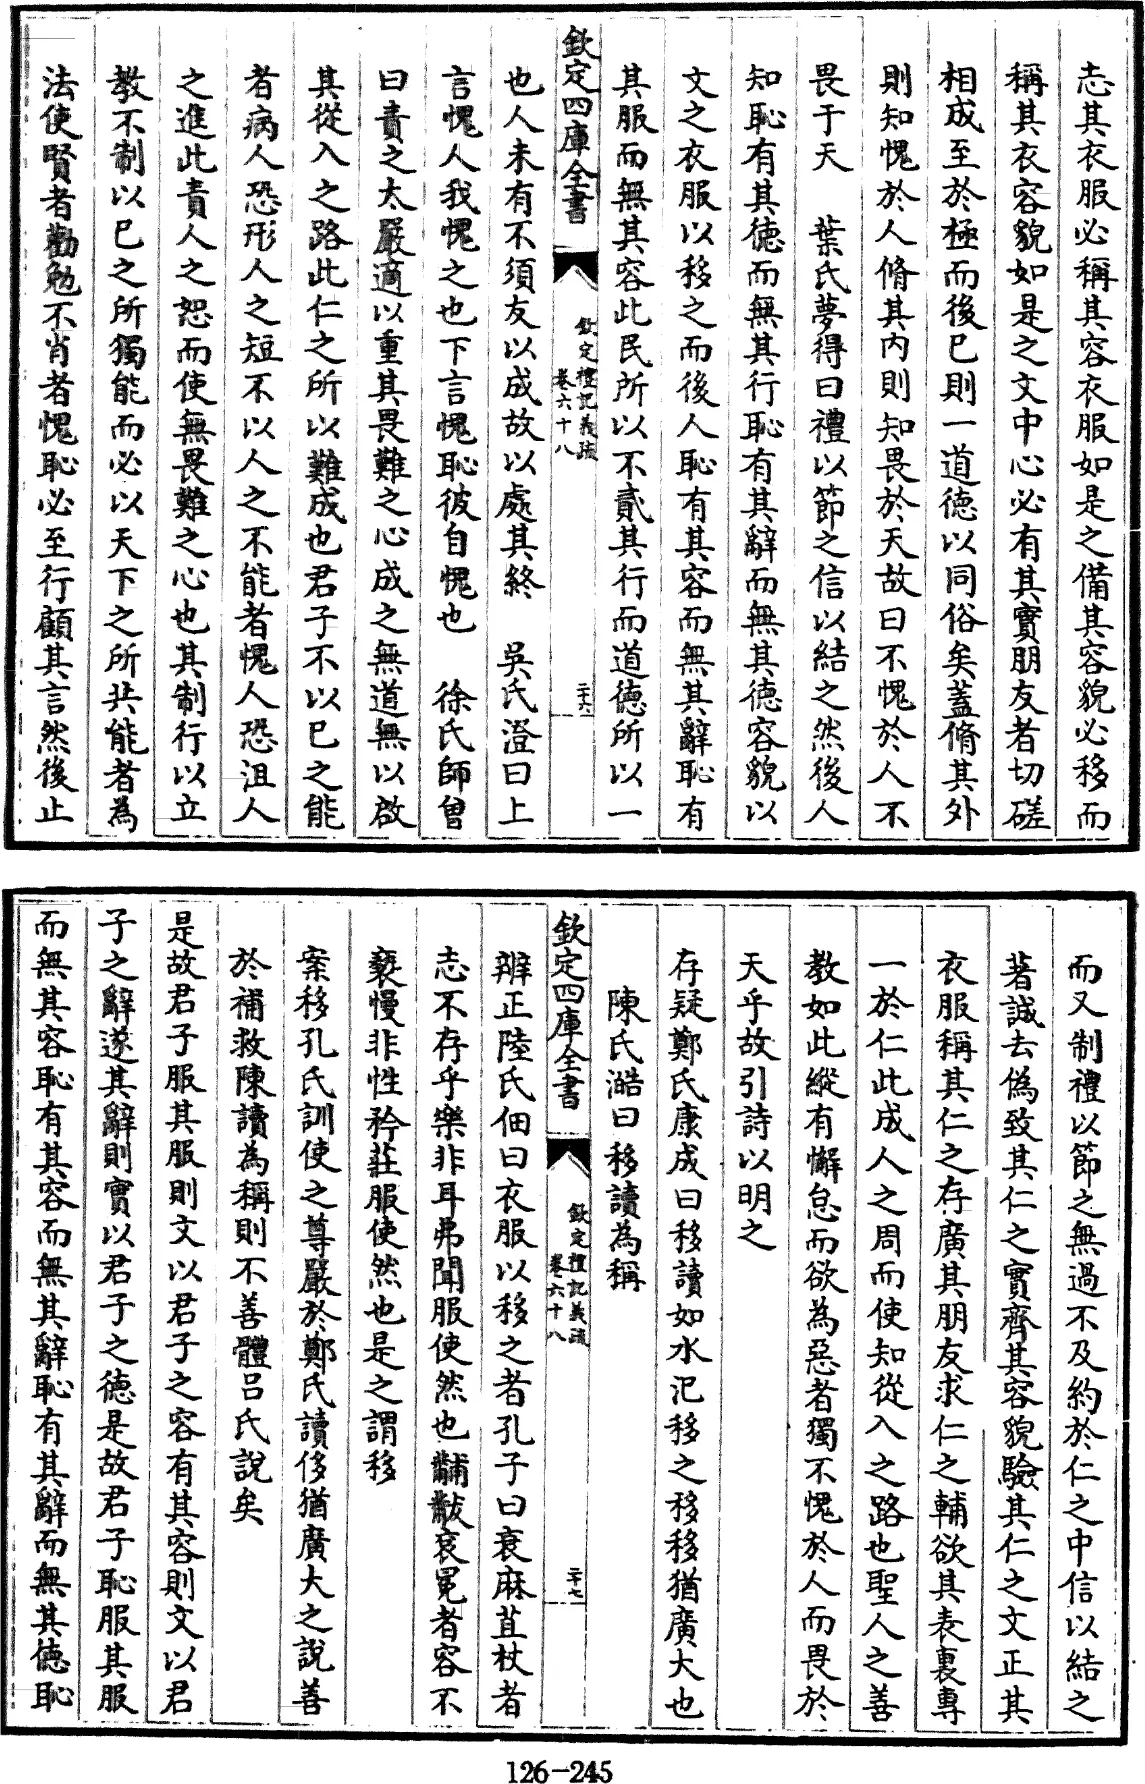 志其衣服必稱其容衣服如是之備其容貌必移而
稱其衣容貌如是之文中心必有其實朋友者切磋
相成至於極而後已則一道德以同俗矣蓋脩其外
則知愧於人脩其内則知畏於天故曰不愧於人不
畏于天　葉氏夢得曰禮以節之信以結之然後人
知恥有其德而無其行恥有其辭而無其德容貌以
文之衣服以移之而後人恥有其容而無其辭恥有
其服而無其容此民所以不貳其行而道德所以一
欽定四庫全書
欽定禮記義疏
卷六十八
二十六
也人未有不須友以成故以處其終　吳氏澄曰上
言愧人我愧之也下言愧恥彼自愧也　徐氏師曾
曰責之太嚴適以重其畏難之心成之無道無以啟
其從入之路此仁之所以難成也君子不以已之能
者病人恐形人之短不以人之不能者愧人恐沮人
之進此責人之恕而使無畏難之心也其制行以立
教不制以已之所獨能而必以天下之所共能者為
法使賢者勸勉不肖者愧恥必至行顧其言然後止
而又制禮以節之無過不及約於仁之中信以結之
著誠去偽致其仁之實齊其容貌驗其仁之文正其
衣服稱其仁之存廣其朋友求仁之輔欲其表裏專
一於仁此成人之周而使知從入之路也聖人之善
教如此縱有懈怠而欲為惡者獨不愧於人而畏於
天乎故引詩以明之
存疑鄭氏康成曰移讀如水汜移之移移猶廣大也
陳氏澔曰移讀為稱
欽定四庫全書
欽定禮記義疏
卷六十八
二十七
辨正陸氏佃曰衣服以移之者孔子曰衰麻苴杖者
志不存乎樂非耳弗聞服使然也黼黻袞冕者容不
褻慢非性矜莊服使然也是之謂移
案移孔氏訓使之尊嚴於鄭氏讀侈猶廣大之說善
於補救陳讀為稱則不善體呂氏說矣
是故君子服其服則文以君子之容有其容則文以君
子之辭遂其辭則實以君子之德是故君子恥服其服
而無其容恥有其容而無其辭恥有其辭而無其德恥
126-245